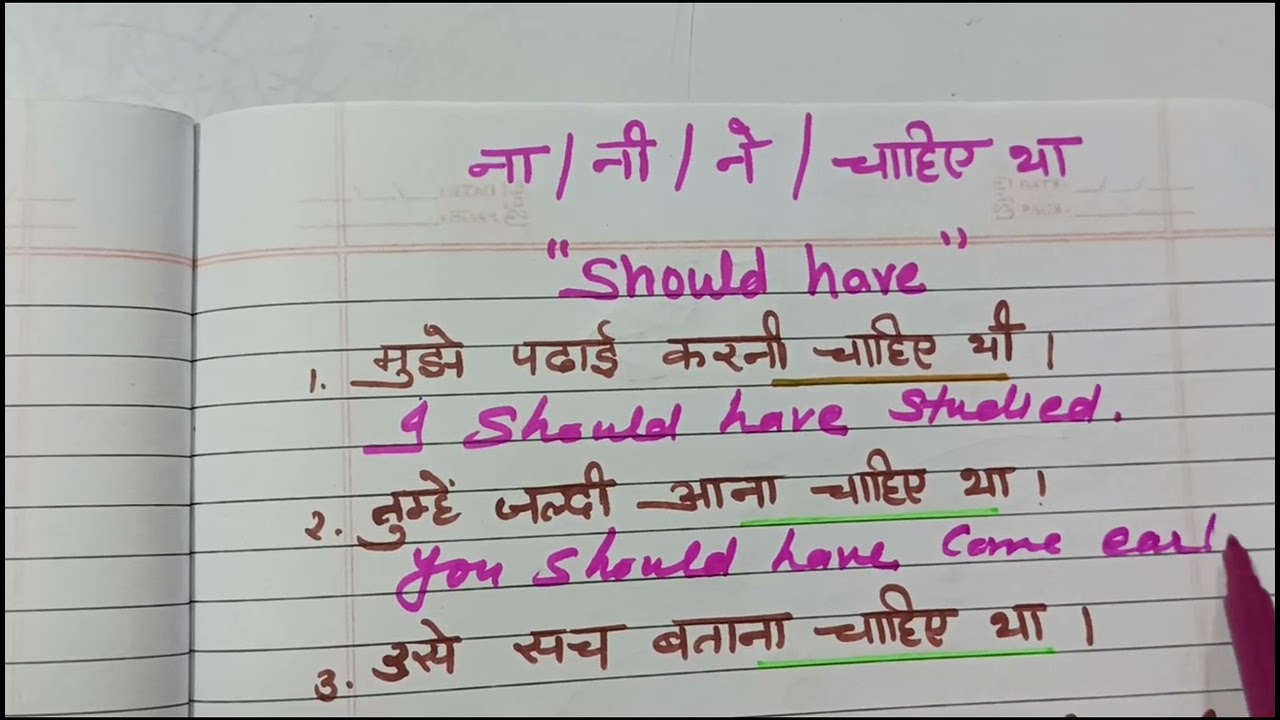 ना / नी / ने / चाहिए था
"Should have"
1. मुझे पढाई करनी चाहिए थी ।
I should have studied.
2. तुम्हें जल्दी आना चाहिए था ।
You should have come earl
3. उसे सच बताना चाहिए था ।